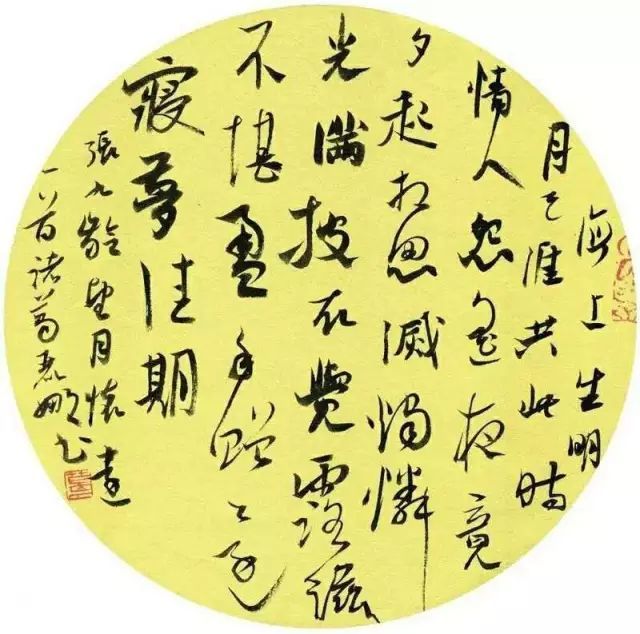 海上生明
月天涯共此時
情人怨遙夜竟
夕起相思滅燭憐
光滿披衣覺露滋
不堪盈手贈還
寢夢佳期
張九齡望月懷遠
一首諸葛娜书